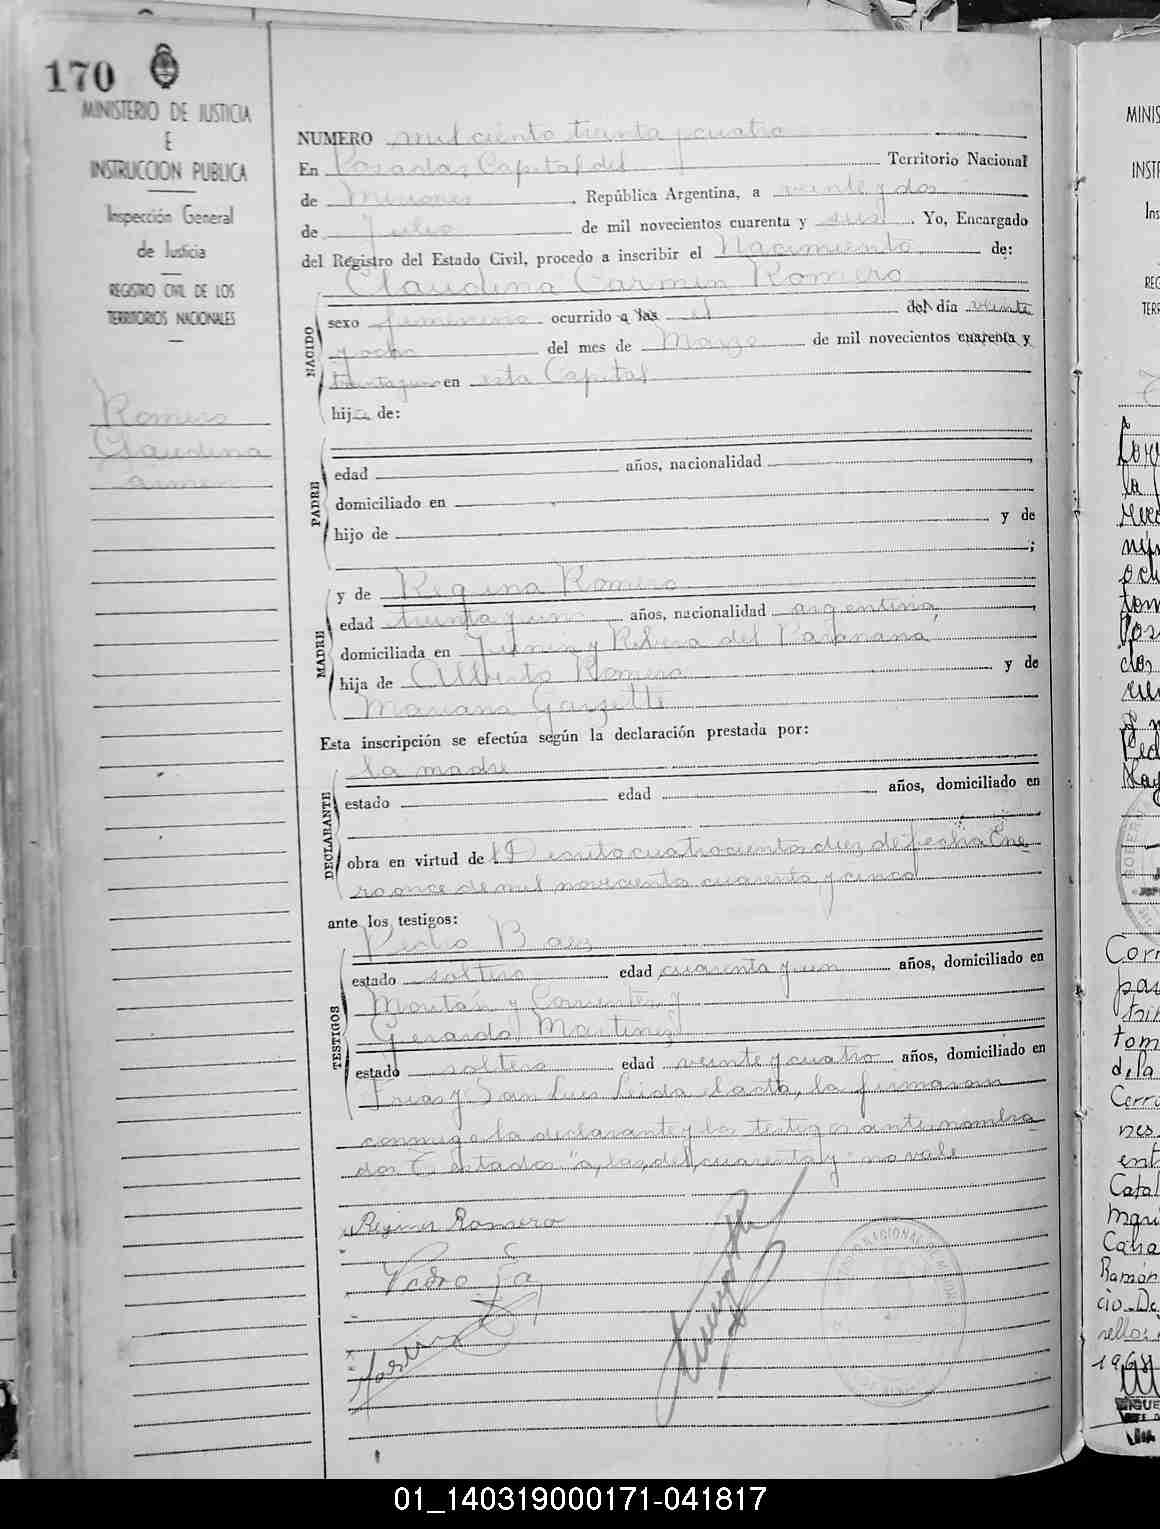 170
MINISTERIO DE JUSTICIA
E
INSTRUCCION PUBLICA
Inspección General
de Justicia
REGISTRO CIVIL DE LOS
TERRITORIOS NACIONALES
Romero
Claudina
NUMERO mil ciento treinta y cuatro
En Posadas Capital del Territorio Nacional
de Misiones, República Argentina, a veinte y dos
de Julio de mil novecientos cuarenta y seis. Yo, Encargado
del Registro del Estado Civil, procedo a inscribir el Nacimiento de:
Claudina Carmen Romero
NACIDO
sexo femenino ocurrido a las el del día veinte
y ocho del mes de Marzo de mil novecientos cuarenta y
treinta y un en esta Capital
hija de:
PADRE
edad años, nacionalidad
domiciliado en
hijo de y de
;
MADRE
y de Regina Romero
edad treinta y un años, nacionalidad argentina,
domiciliada en Junin y Ribera del Paranana,
hija de Alberto Romero y de
Mariana Garzetti
Esta inscripción se efectúa según la declaración prestada por:
la madre
DECLARANTE
estado edad años, domiciliado en
obra en virtud de D escrito cuatrocientos diez de fecha Ene
ro once de mil novecientos cuarenta y cinco
ante los testigos:
Pedro Baez
TESTIGOS
estado soltero edad cuarenta y un años, domiciliado en
Moritán y Corrientes y
Gerardo Martinez
estado soltero edad veinte y cuatro años, domiciliado en
Frias y San Luis Leida el acta, la firmaron
conmigo la declarante y los testigos antenombra
dos. Testados "a, las, del, cuarenta y" no vale
Regina Romero
Pedro
MINIS
INSTR
Ins
REG
TERR
Corr
par
tom
d.la
Cerro
nes
ent
Catal
Mari
Caña
Ramón
cio De
rellos
1968
01_140319000171-041817